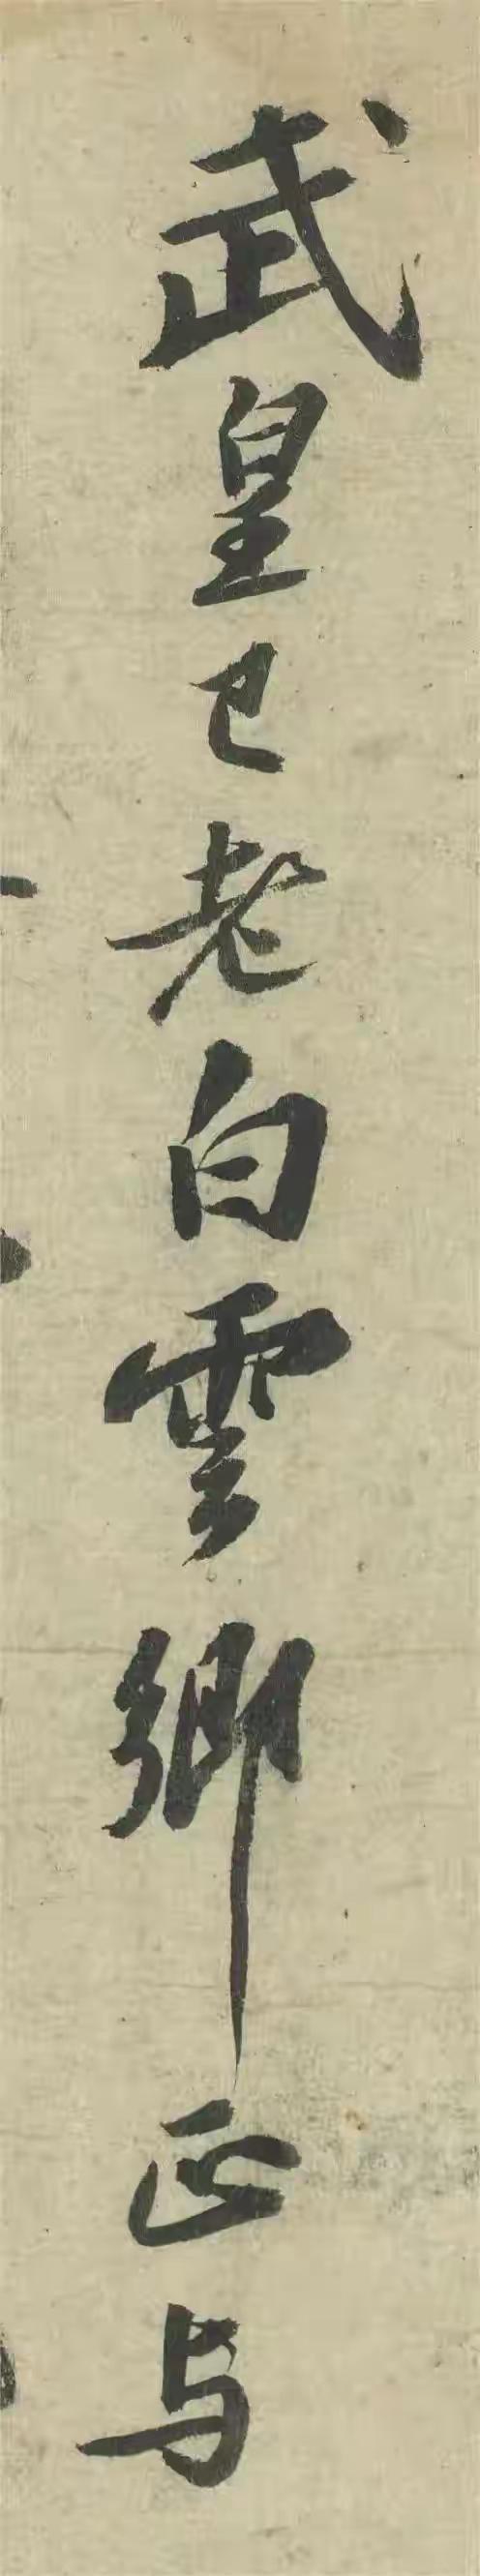 武皇已老白雲鄉正与